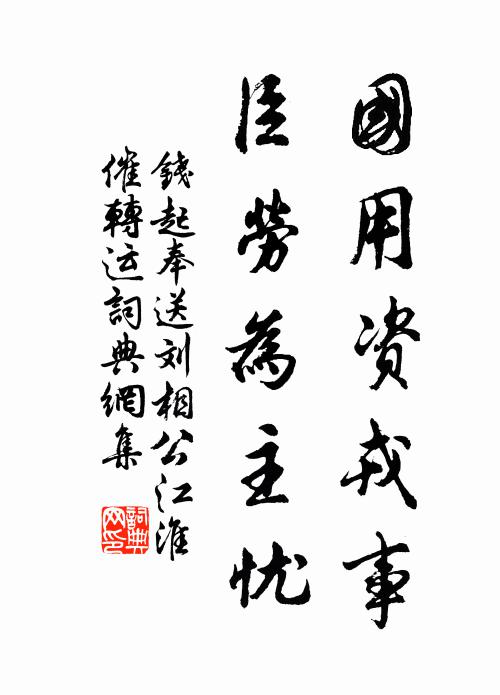 國用資戎事
臣勞為主忧
錢起奉送刘相公江淮
催轉运詞典網集
詞典网印